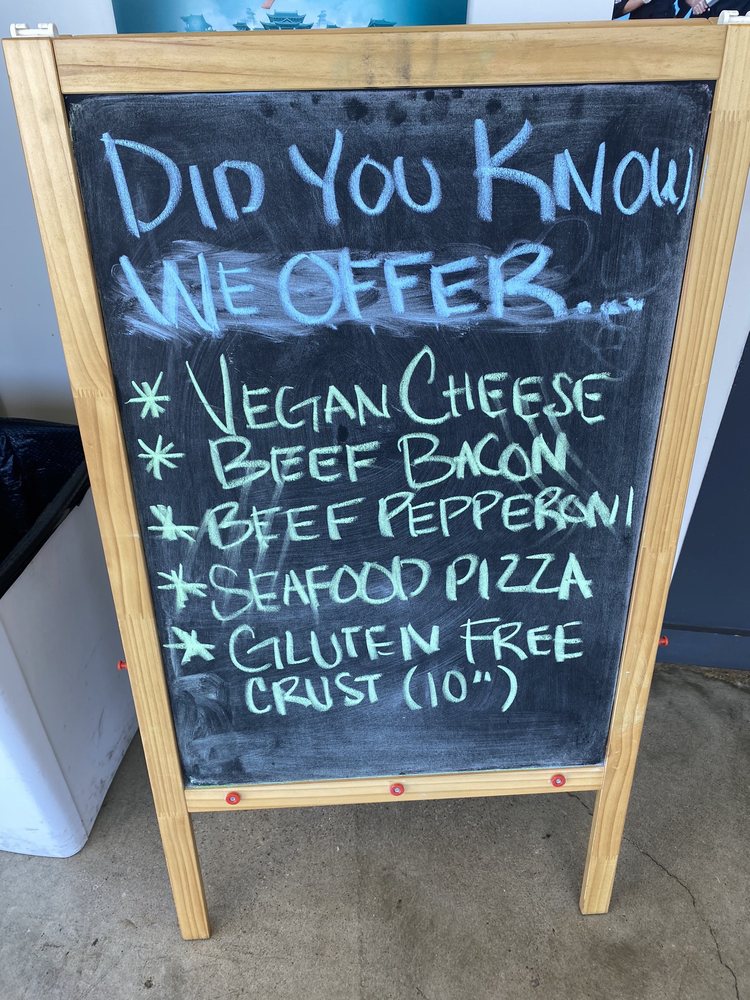 DID YOU KNOW
WE OFFER...
* VEGAN CHEESE
* BEEF BACON
* BEEF PEPPERONI
* SEAFOOD PIZZA
* GLUTEN FREE
CRUST (10")